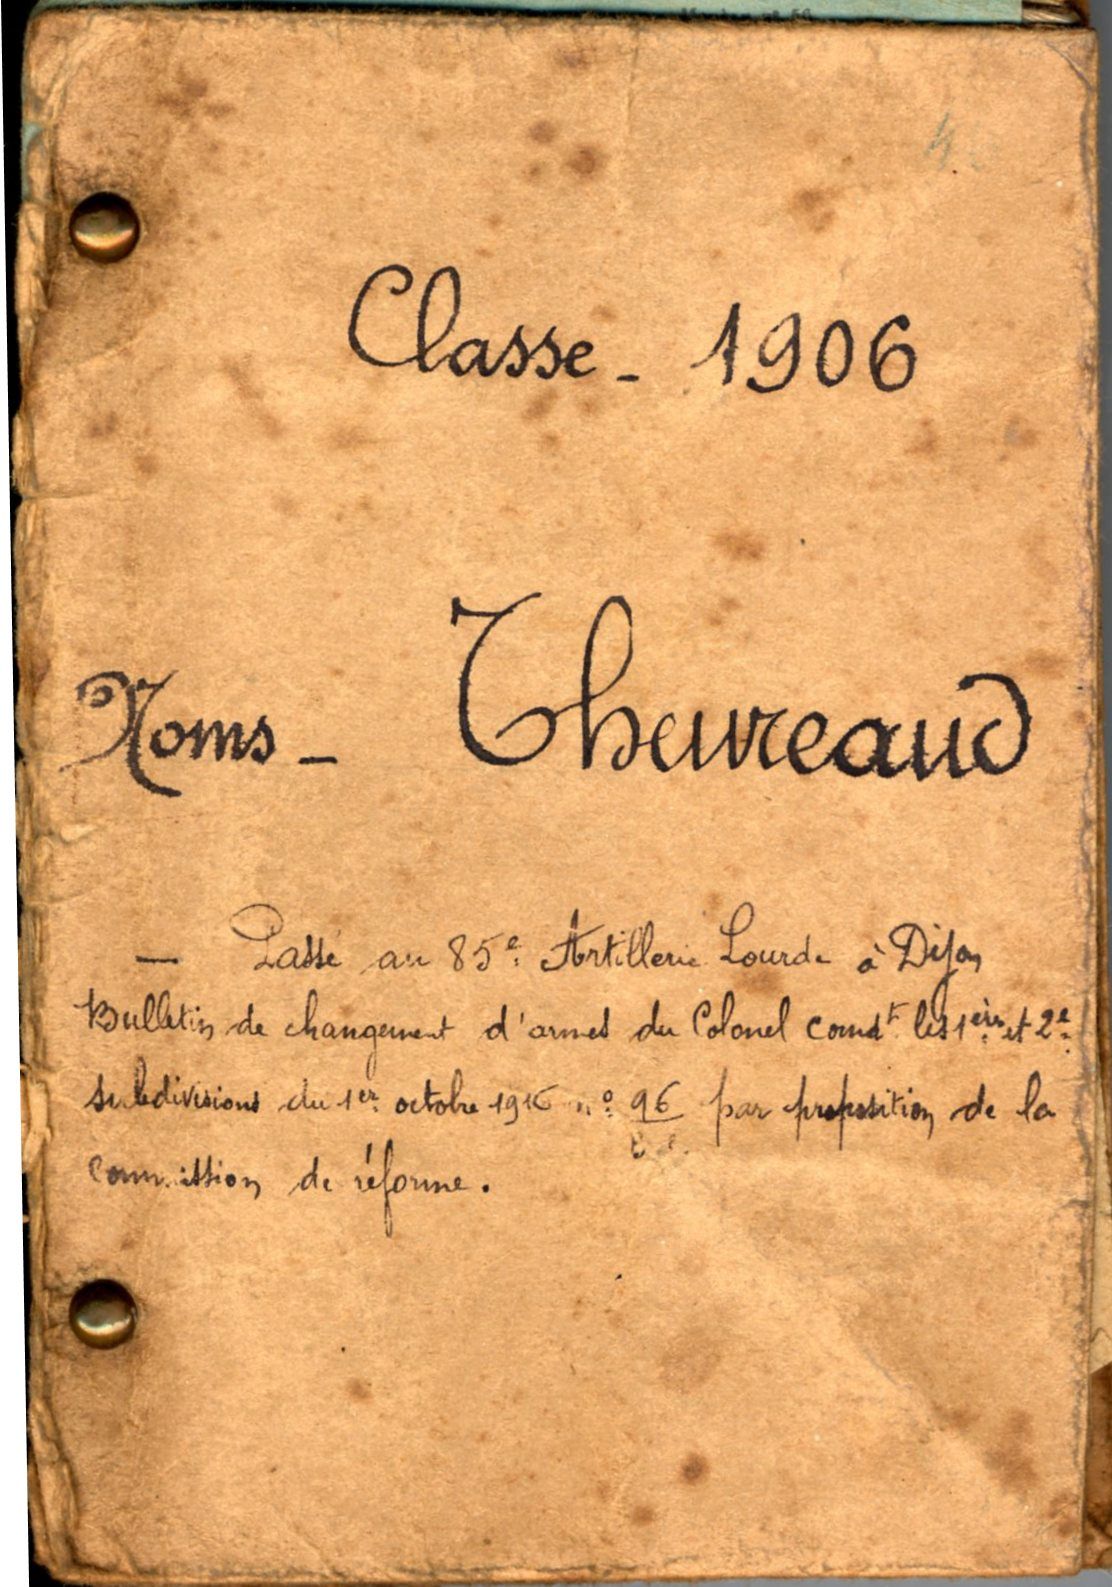 Classe - 1906
Noms - Theureaud
— Passé au 85e. Artillerie Lourde à Dijon
Bulletin de changement d'armes du Colonel comdt. les 1ère. et 2e.
subdivisions du 1er. octobre 1916 no. 96 par proposition de la
commission de réforme.